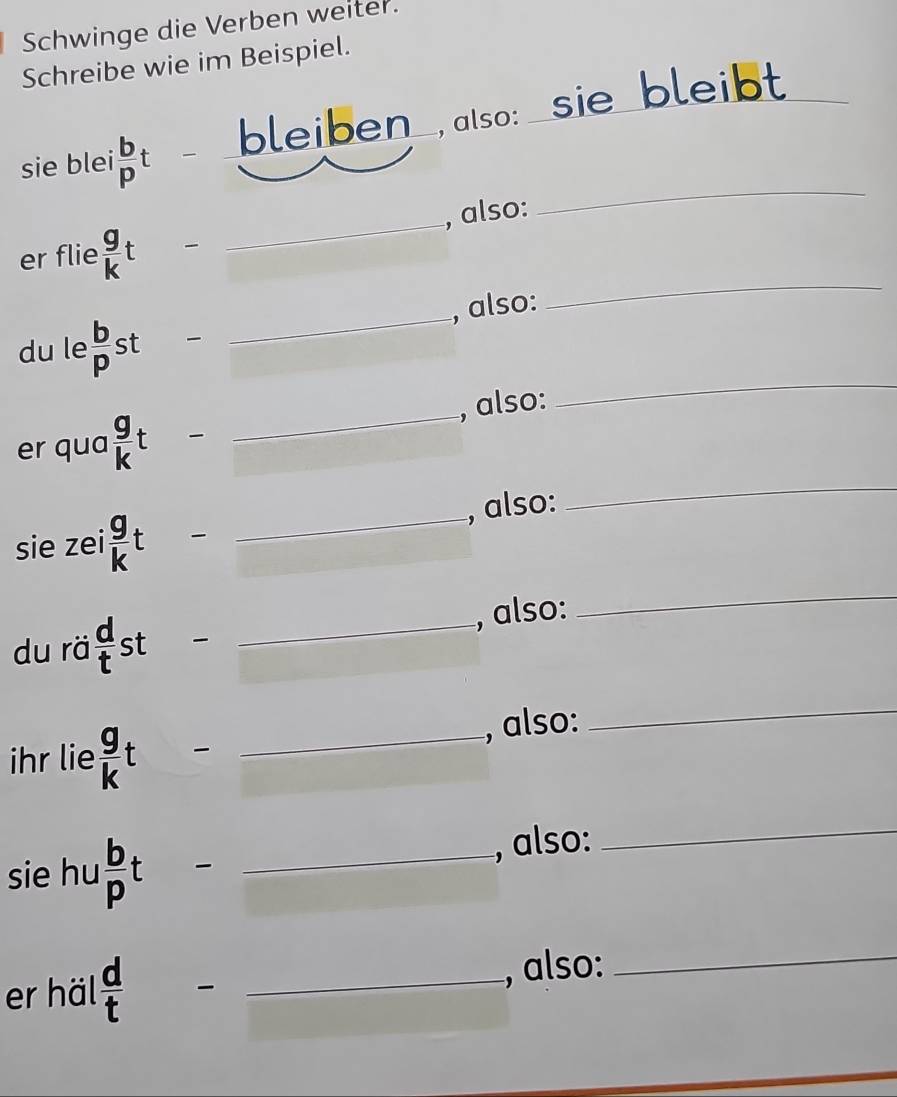 Schwinge die Verben weiter.
Schreibe wie im Beispiel.
sie blei b/p t - bleiben, also: sie bleibt
er flie g/k t - ________, also: ________
du le b/p st - ________, also: ________
er qua g/k t - ________, also: ________
sie zei g/k t - ________, also: ________
du rä d/t st - ________, also: ________
ihr lie g/k t - ________, also: ________
sie hu b/p t - ________, also: ________
er häl d/t - ________, also: ________